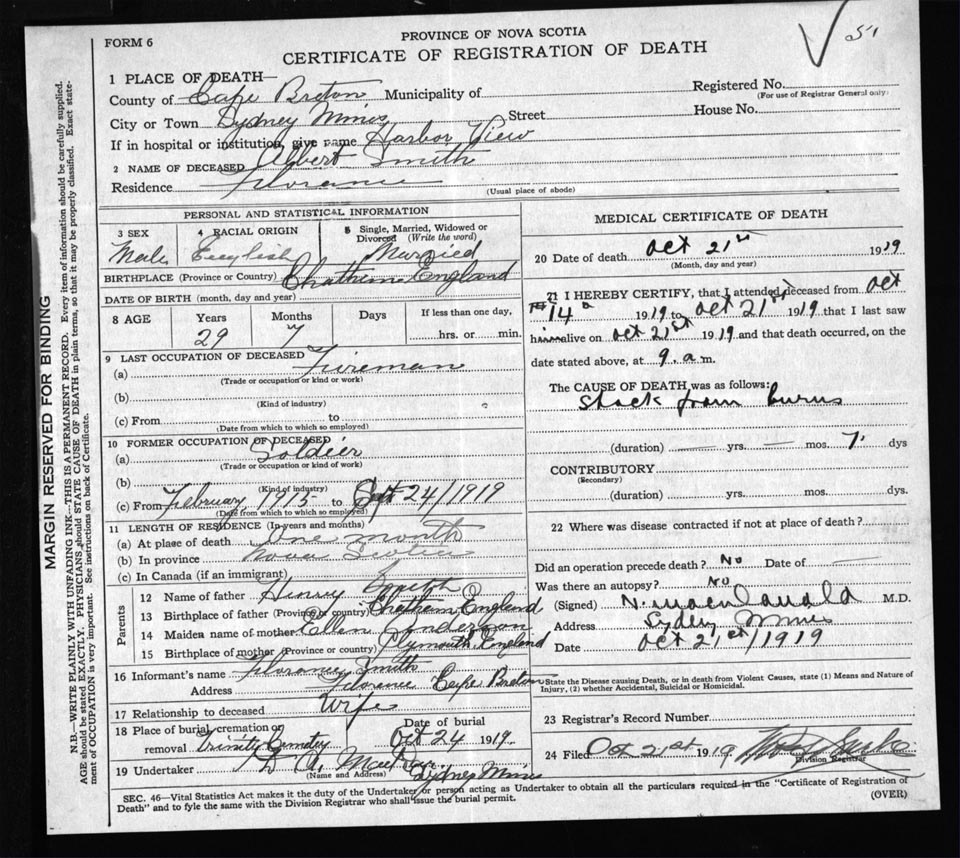 FORM 6
PROVINCE OF NOVA SCOTIA
CERTIFICATE OF REGISTRATION OF DEATH
51
1 PLACE OF DEATH—
County of Cape Breton Municipality of
Registered No.
(For use of Registrar General only)
City or Town Sydney Mines Street
House No.
If in hospital or institution, give name Harbor View
2 NAME OF DECEASED Albert Smith
Residence Florance
(Usual place of abode)
MARGIN RESERVED FOR BINDING
N.B.—WRITE PLAINLY WITH UNFADING INK—THIS IS A PERMANENT RECORD. Every item of information should be carefully supplied.
AGE should be stated EXACTLY. PHYSICIANS should STATE CAUSE OF DEATH in plain terms, so that it may be properly classified. Exact state-
ment of OCCUPATION is very important. See instructions on back of Certificate.
PERSONAL AND STATISTICAL INFORMATION
3 SEX
Male
4 RACIAL ORIGIN
English
5 Single, Married, Widowed or
Divorced (Write the word)
Married
BIRTHPLACE (Province or Country) Chathem England
DATE OF BIRTH (month, day and year)
8 AGE
Years
29
Months
7
Days
If less than one day,
hrs. or min.
9 LAST OCCUPATION OF DECEASED
(a) Fireman
(Trade or occupation or kind or work)
(b)
(Kind of industry)
(c) From to
(Date from which to which so employed)
10 FORMER OCCUPATION OF DECEASED
(a) Soldier
(Trade or occupation or kind of work)
(b)
(Kind of industry)
(c) From February 1915 to Sept 24/1919
(Date from which to which so employed)
11 LENGTH OF RESIDENCE (In years and months)
(a) At place of death One month
(b) In province Nova Scotia
(c) In Canada (if an immigrant)
Parents
12 Name of father Henry Smith
13 Birthplace of father (Province or country) Chathem England
14 Maiden name of mother Ellen
15 Birthplace of mother (Province or country) Plymouth England
16 Informant's name Florance Smith
Address Florence Cape Breton
17 Relationship to deceased Wife
18 Place of burial, cremation or
removal Trinity Cemetery
Date of burial
Oct 24 1919.
19 Undertaker D A Sydney Mines
(Name and Address)
MEDICAL CERTIFICATE OF DEATH
20 Date of death Oct 21st 1919
(Month, day and year)
21 I HEREBY CERTIFY, that I attended deceased from Oct
14th 1919 to Oct 21st 1919 that I last saw
him alive on Oct 21st 1919 and that death occurred, on the
date stated above, at 9. a m.
The CAUSE OF DEATH was as follows:
Shock from burns
(duration) yrs. mos. 7 dys
CONTRIBUTORY
(Secondary)
(duration) yrs. mos. dys.
22 Where was disease contracted if not at place of death?
Did an operation precede death? No Date of
Was there an autopsy? No
(Signed) M.D.
Address Sydney Mines
Date Oct 21st/1919
State the Disease causing Death, or in death from Violent Causes, state (1) Means and Nature of
Injury, (2) whether Accidental, Suicidal or Homicidal.
23 Registrar's Record Number
24 Filed Oct 21st 1919
Division Registrar
SEC. 46—Vital Statistics Act makes it the duty of the Undertaker or person acting as Undertaker to obtain all the particulars required in the "Certificate of Registration of
Death" and to fyle the same with the Division Registrar who shall issue the burial permit.
(OVER)